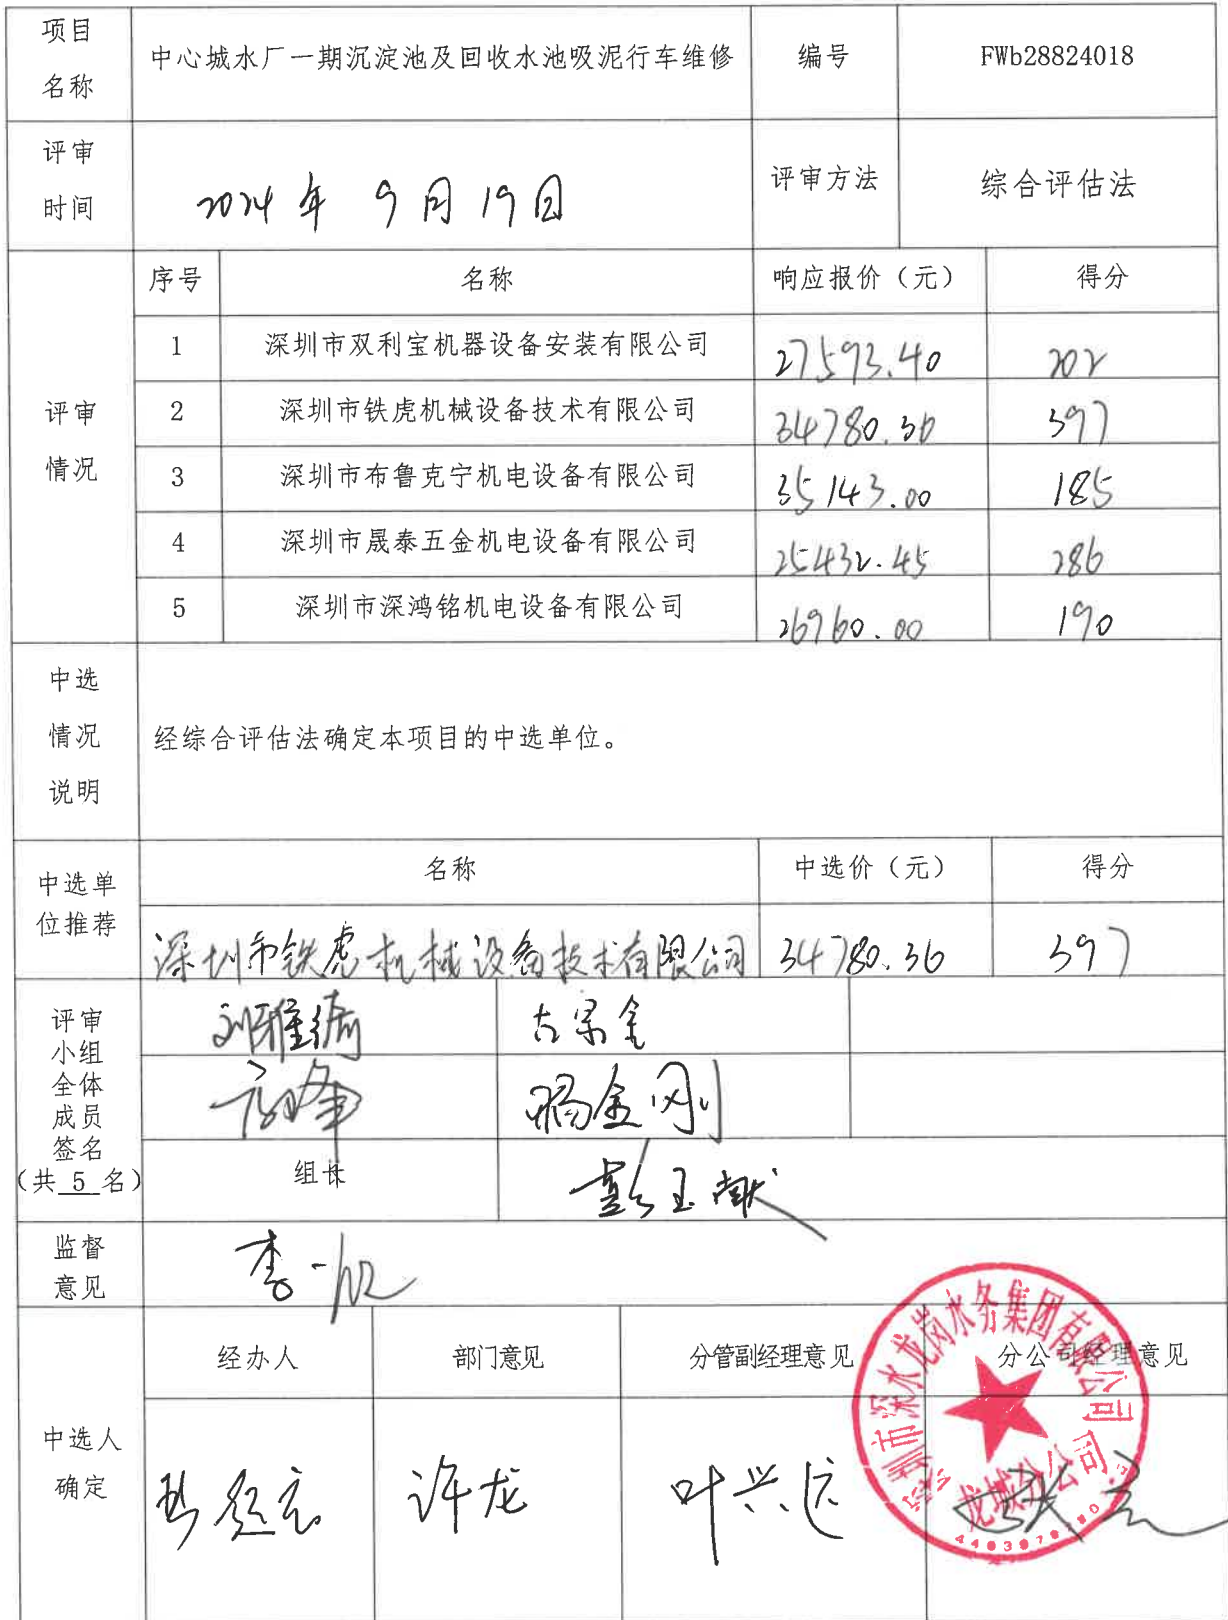 项目名称 中心城水厂一期沉淀池及回收水池吸泥行车维修 编号 FWb28824018
评审时间 2024年 9月19日 评审方法 综合评估法
评审情况
序号 名称 响应报价（元） 得分
1 深圳市双利宝机器设备安装有限公司 27593.40 202
2 深圳市铁虎机械设备技术有限公司 34780.36 397
3 深圳市布鲁克宁机电设备有限公司 35143.00 185
4 深圳市晟泰五金机电设备有限公司 25432.45 286
5 深圳市深鸿铭机电设备有限公司 26960.00 190
中选情况说明 经综合评估法确定本项目的中选单位。
中选单位推荐
名称 中选价（元） 得分
深圳市铁虎机械设备技术有限公司 34780.36 397
评审小组全体成员签名（共 5 名）
杨金刚
组长 彭玉献
监督意见 李一
中选人确定
经办人 部门意见 分管副经理意见 分公司经理意见
许龙 叶兴
深圳市深水龙岗水务集团有限公司
龙城分公司